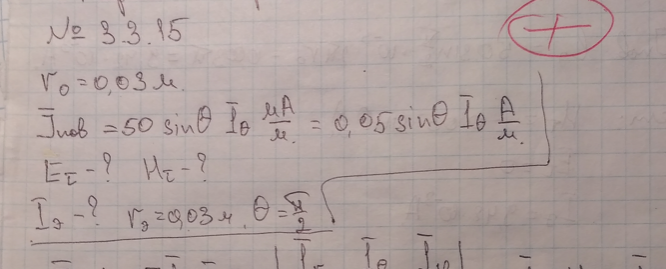 № 3.3.15
r₀ = 0,03 м.
J̄пов = 50 sinθ Ī_θ мА/м. = 0,05 sinθ Ī_θ А/м.
E_τ - ? H_τ - ?
I_э - ? r_э = 0,03 м. θ = π/2